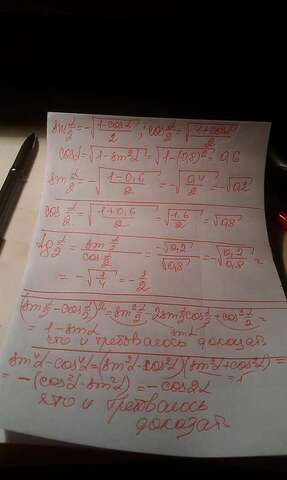 sin α/2 = -√((1-cosα)/2); cos α/2 = √((1+cosα)/2)
cosα = √(1-sin²α) = √(1-(0,8)²) = 0,6
sin α/2 = -√((1-0,6)/2) = -√(0,4/2) = -√0,2
cos α/2 = √((1+0,6)/2) = √(1,6/2) = √0,8
tg α/2 = (sin α/2)/(cos α/2) = -√0,2/√0,8 = -√(0,2/0,8) =
= -√(1/4) = -1/2
(sin α/2 - cos α/2)² = sin² α/2 - 2sin α/2 cos α/2 + cos² α/2 =
sinα
= 1 - sinα
что и требовалось доказать
sin⁴α - cos⁴α = (sin²α - cos²α)(sin²α + cos²α) =
= 1
= -(cos²α - sin²α) = -cos2α
что и требовалось
доказать